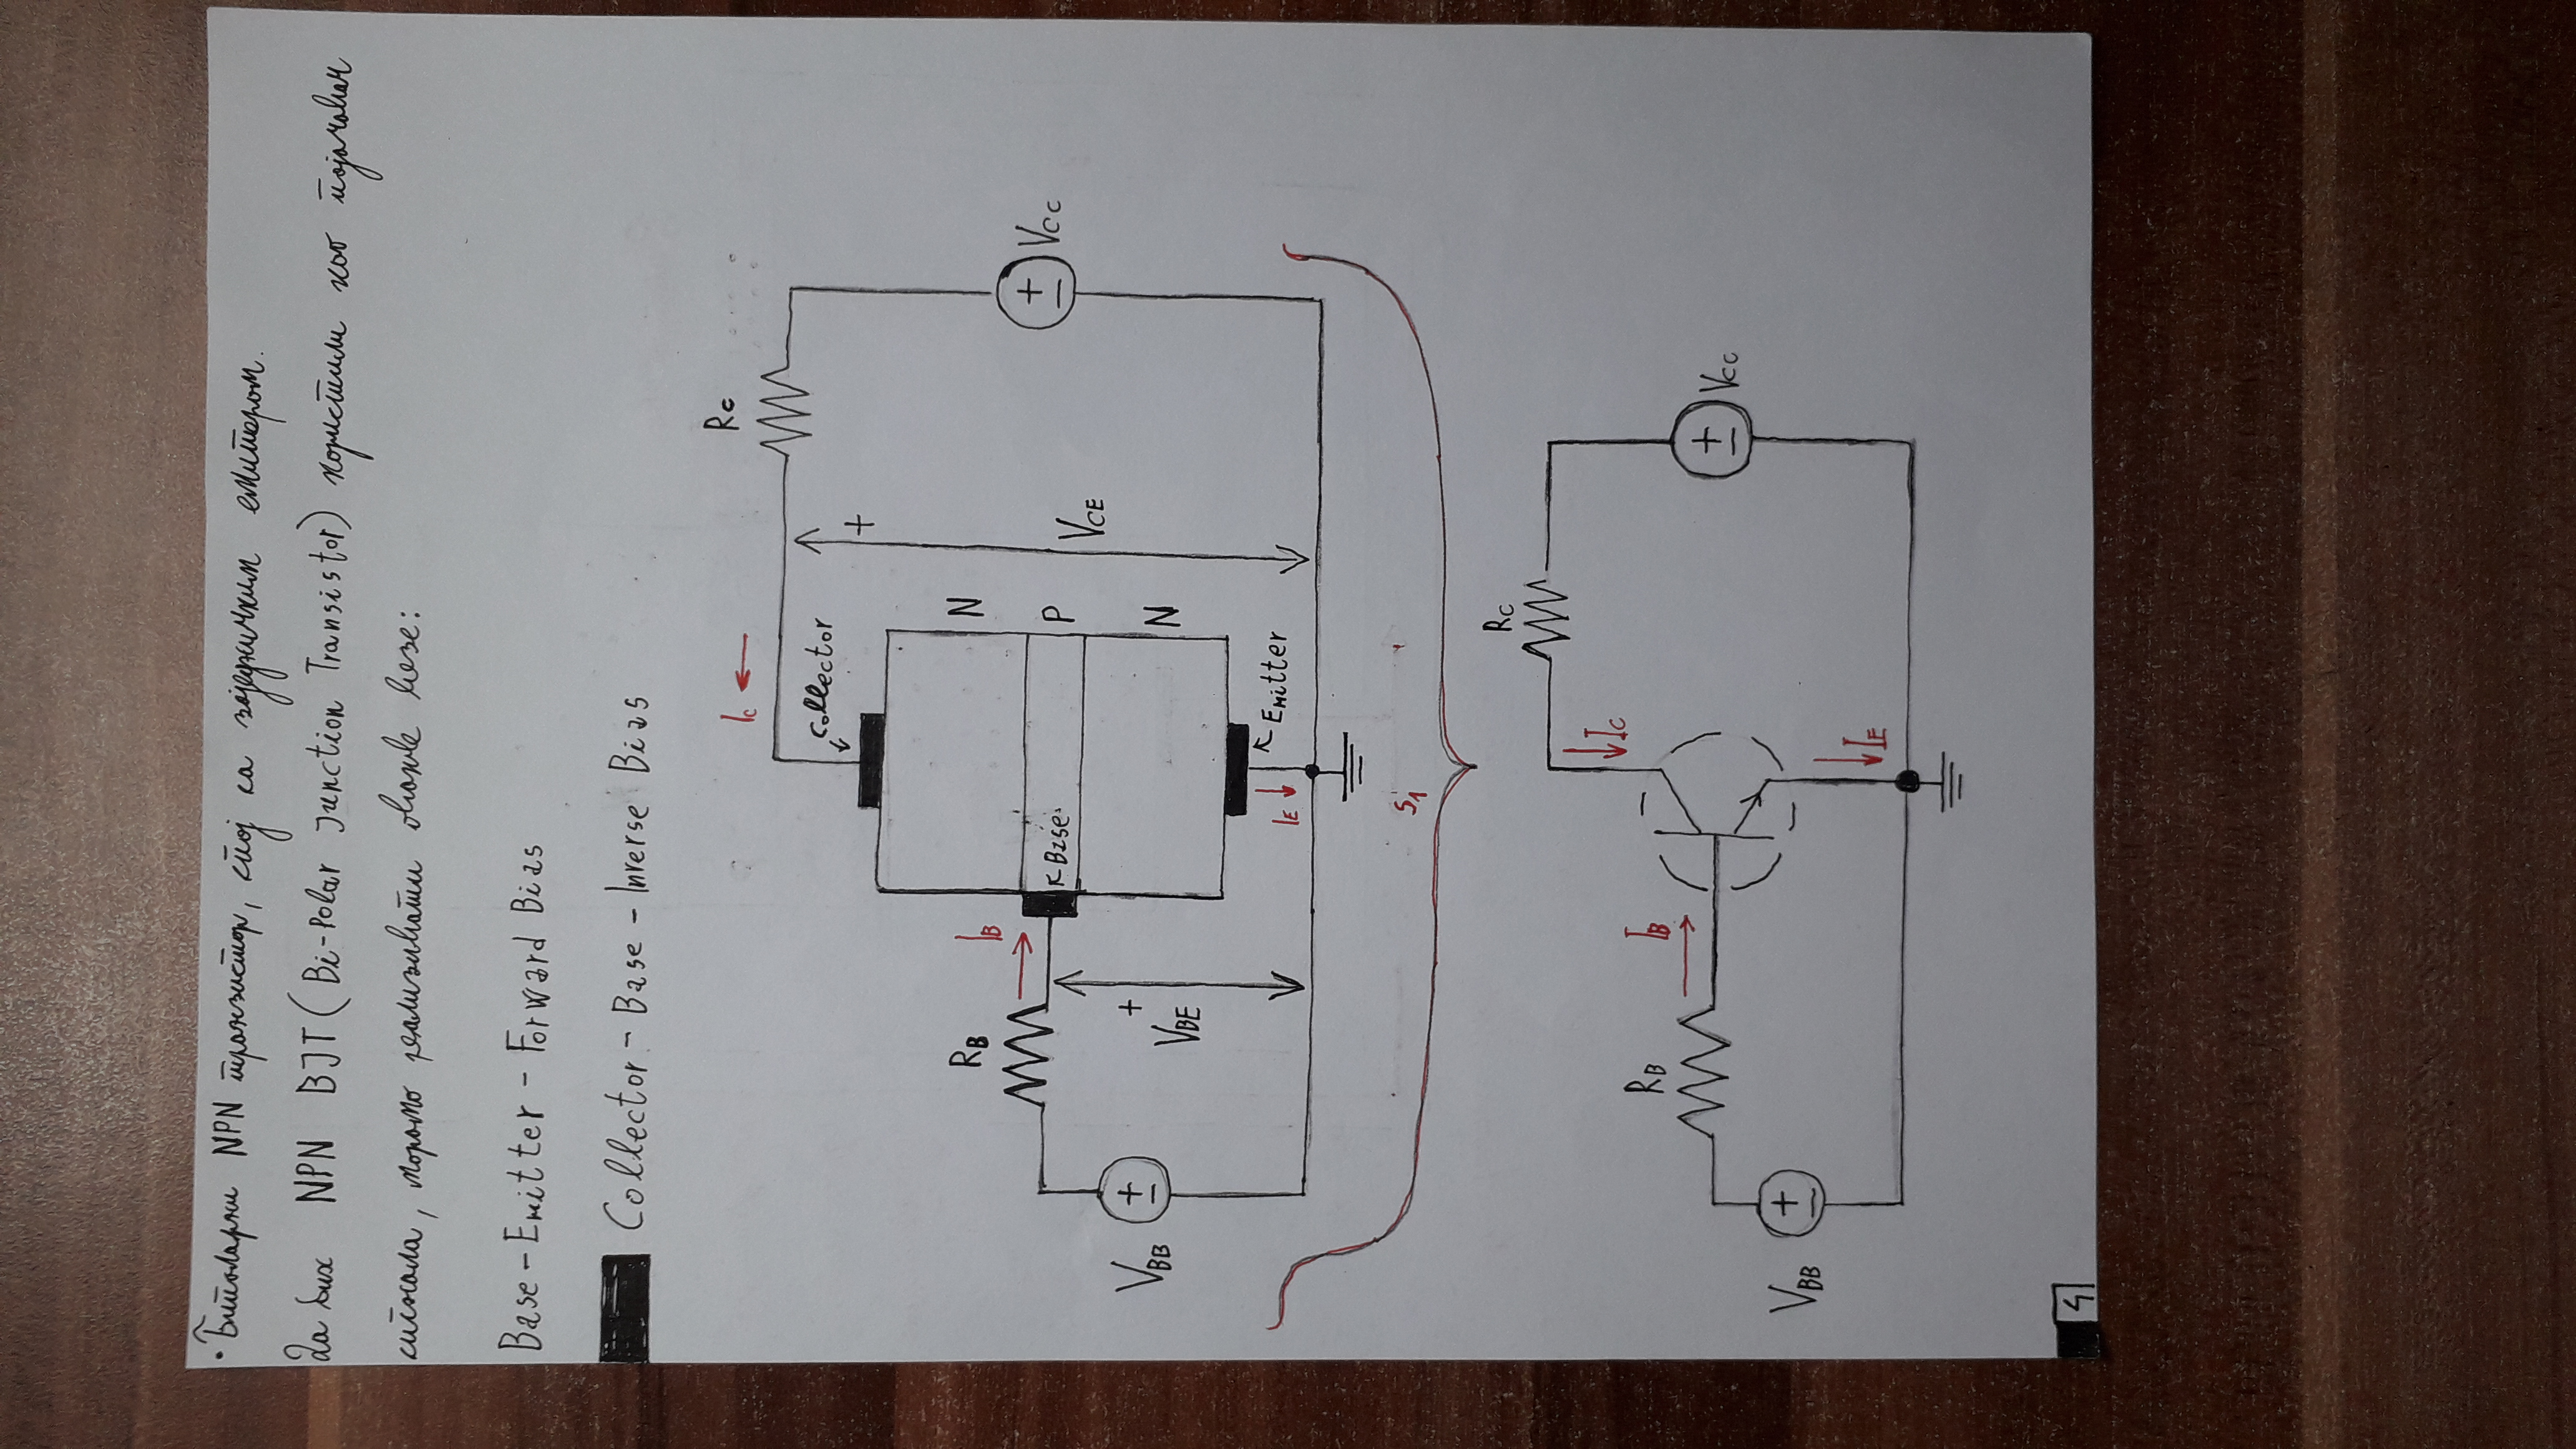 • Биполарни NPN транзистор, спој са заједничким емитером.
Да бих NPN BJT (Bi-Polar Junction Transistor) користили као појачавач
сигнала, морамо реализивати овакве везе:
Base - Emitter - Forward Bias
Collector - Base - Inverse Bias
RC
IC
Collector
+
N
RB
IB
Base
P
+
VCC
VCE
VBB
+
VBE
N
IE
Emitter
S1
RC
IC
RB
IB
+
VCC
VBB
+
IE
4